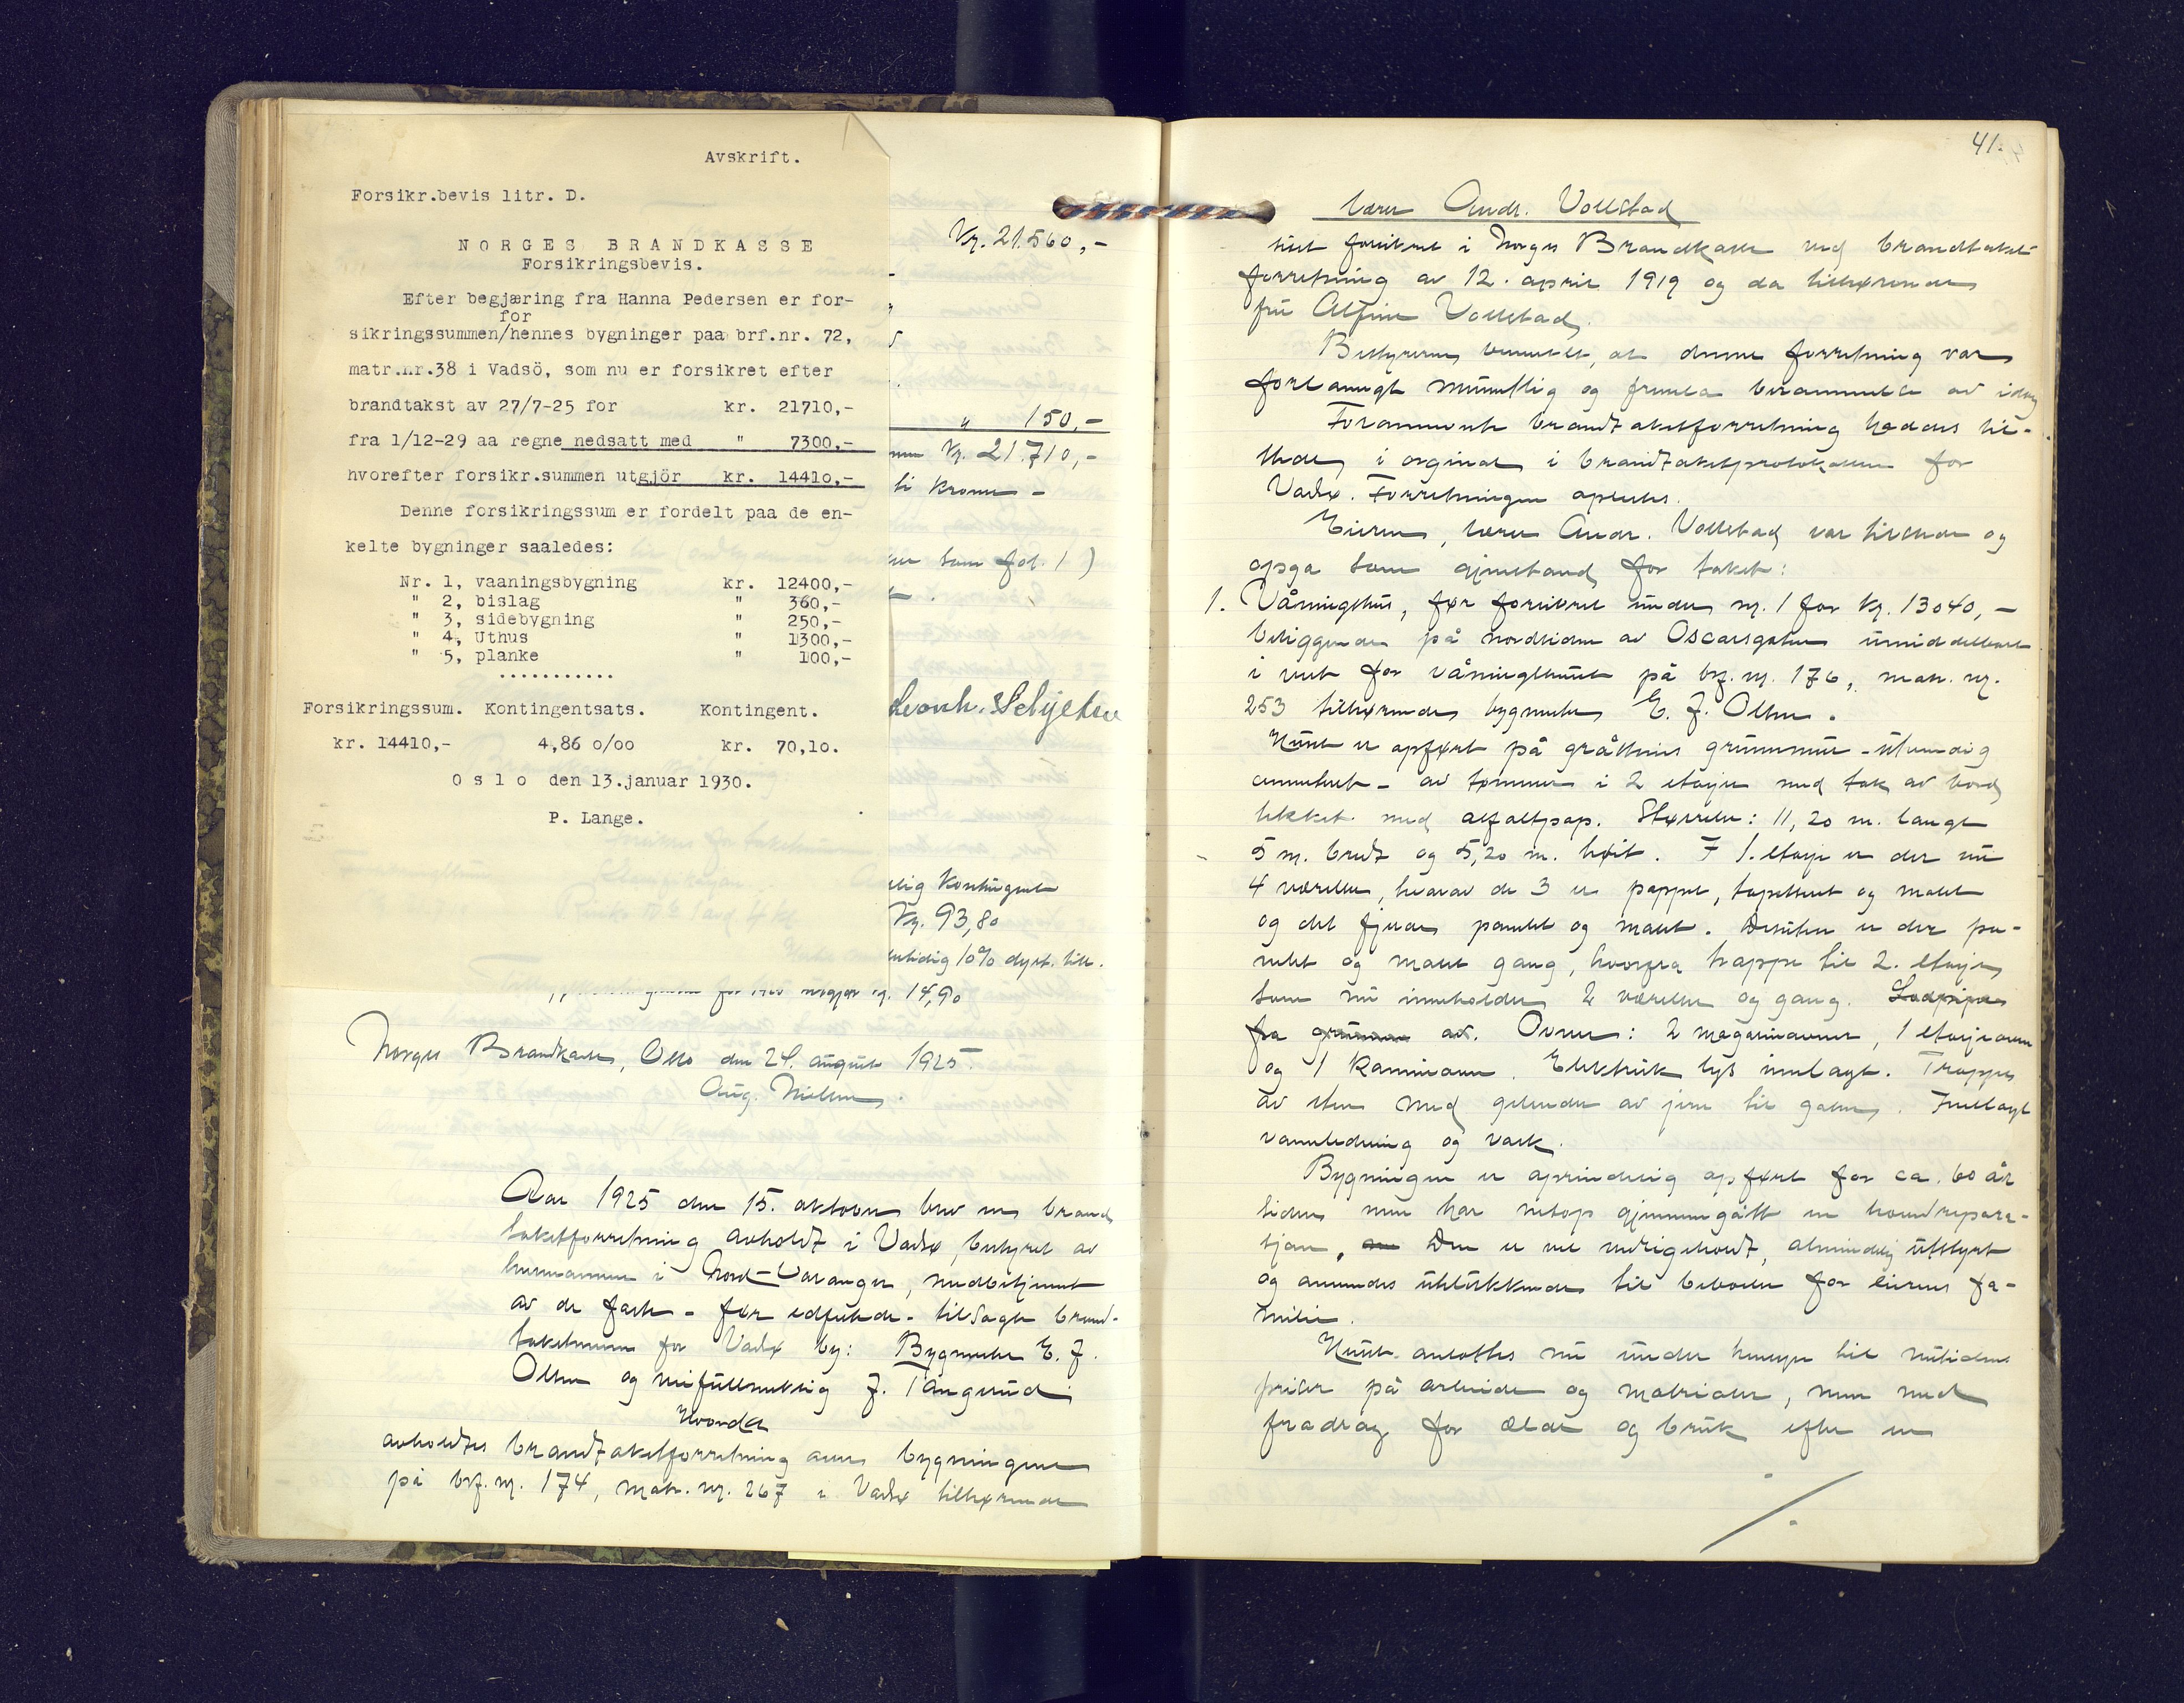 Avskrift.
Forsikr.bevis litr. D.
NORGES BRANDKASSE
Forsikringsbevis.
Efter begjæring fra Hanna Pedersen er for-
for
sikringssummen/hennes bygninger paa brf.nr. 72,
matr.nr.38 i Vadsö, som nu er forsikret efter
brandtakst av 27/7-25 for kr. 21710,-
fra 1/12-29 aa regne nedsatt med " 7300,-
hvorefter forsikr.summen utgjör kr. 14410,-
Denne forsikringssum er fordelt paa de en-
kelte bygninger saaledes:
Nr. 1, vaaningsbygning kr. 12400,-
" 2, bislag " 360,-
" 3, sidebygning " 250,-
" 4, Uthus " 1300,-
" 5, planke " 100,-
...........
Forsikringssum. Kontingentsats. Kontingent.
kr. 14410,- 4,86 o/oo kr. 70,10.
Oslo den 13.januar 1930.
P. Lange.
Kr. 21.560,-
" 150,-
Kr. 21.710,-
ti kroner -
som fol. 1)
Leonh. Schjelderup
Kontingent
Kr. 93,80
10% dyrt. till.
14,90
Norges Brandkasse, Oslo den 24. august 1925.
Aug. Nielsen.
Aar 1925 den 15. oktober blev en brand
takstforretning avholdt i Vadsø, bestyret av
lensmannen i Nord-Varanger, medbetjent
av de faste - før edfestede - tilsagte brand-
takstmenn for Vadsø by: Bygmester E. J.
Olsen og veifullmektig J. Tangerud
Hvorda
avholdtes brandtakstforretning over bygningene
på brf. nr. 174, matr. nr. 267 i Vadsø tilhørende
41.
lærer Andr. Vollstad
sist forsikret i Norges Brandkasse ved brandtakst-
forretning av 12. april 1919 og da tilhørende
fru Alfine Vollstad.
Bestyreren bemerket, at denne forretning var
forlangt muntlig og herunder berammet av idag
Forannevnte brandtakstforretning haddes til-
stede i orginal i brandtakstprotokollen for
Vadsø. Forretningen oplestes.
Eieren, lærer Andr. Vollstad var tilstede og
opga som gjenstand for takst:
1. Våningshus, før forsikret under nr. 1 for kr. 13040,-
beliggende på nordsiden av Oscarsgaten umiddelbart
i vest for våningshuset på brf. nr. 176, matr. nr.
253 tilhørende bygmester E. J. Olsen.
Huset er opført på gråstens grunnmur - utvendig
cementert - av tømmer i 2 etasjer med tak av bord
tekket med asfaltpap. Størrelse: 11,20 m. langt
5 m. bredt og 5,20 m. høit. I 1. etasje er der nu
4 værelser, hvorav de 3 er pappet, tapetsert og malet
og det fjerde panelt og malet. Desuten er der pa-
nelt og malet gang, hvorfra trappe til 2. etasje
som nu inneholder 2 værelser og gang. Lodpiper
fra grunnen av. Ovner: 2 magasinovner, 1 etasjeovn
og 1 kaminovn. Elektrisk lys innlagt. Trappe
av sten med gelender av jern til gaten. Innlagt
vannledning og vask.
Bygningen er oprindelig opført for ca. 60 år
siden men har netop gjennemgått en hovedrepara-
sjon. Den er vel vedlikeholdt, almindelig utstyrt
og ansees utelukkende til beboelse for eierens fa-
milie.
Huset ansattes nu under hensyn til nutidens
priser på arbeide og materialer, men med
fradrag for ælde og bruk efter en
./.